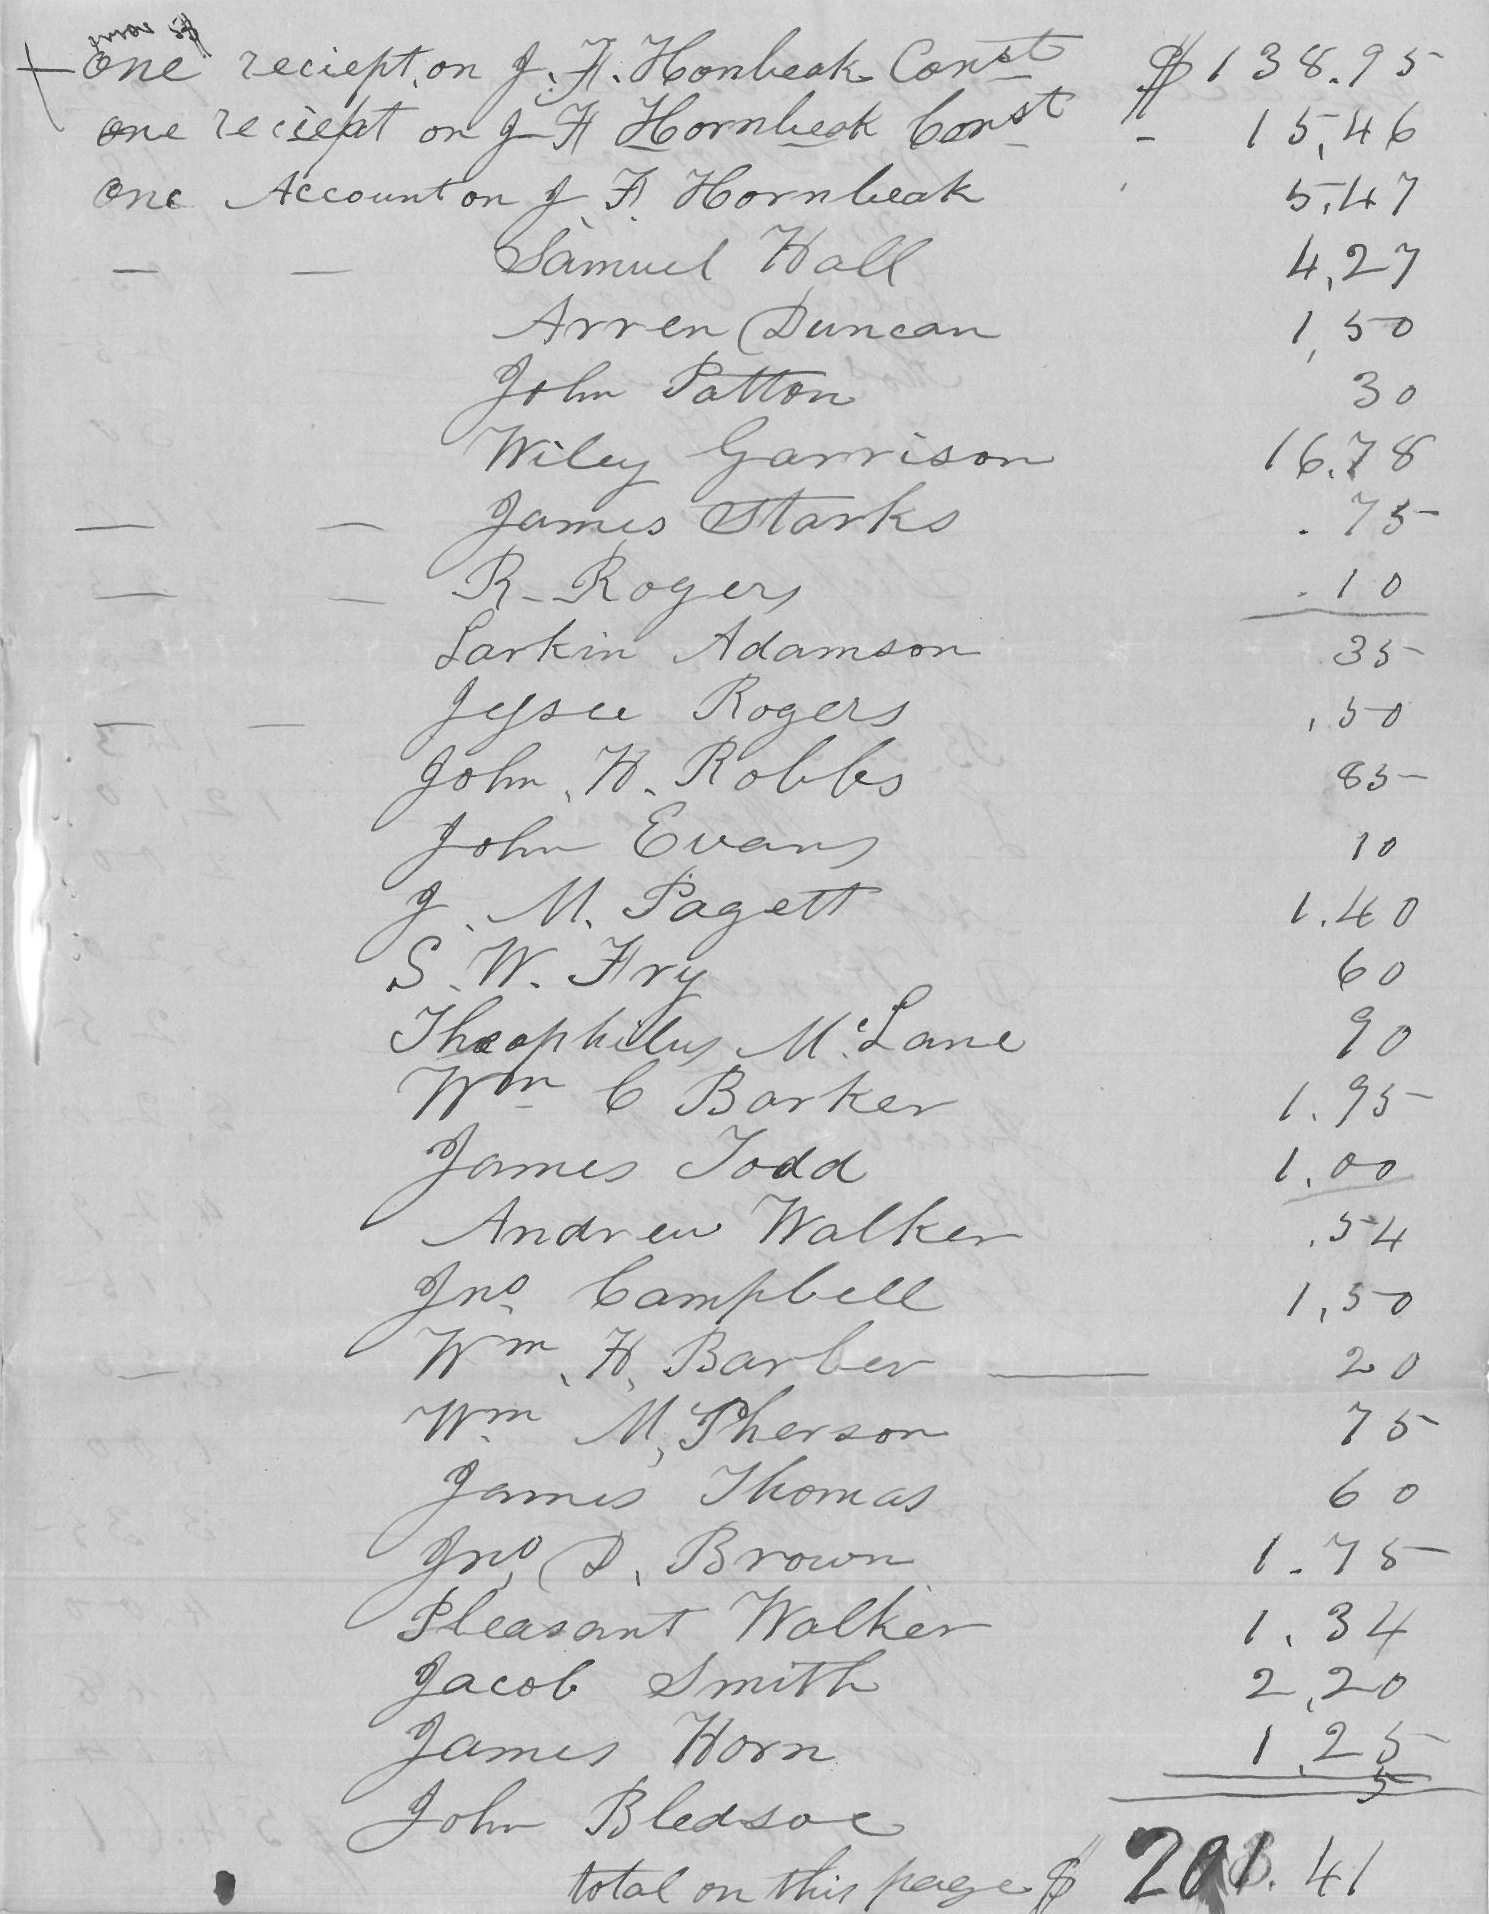 One reciept on J. H. Honbeak Const $138.95
one reciept on J H Hornbeak Const - 15,46
One Account on J. H. Hornbeak 5,47
— — Samuel Hall 4,27
Arren Duncan 1,50
John Patton 30
Wiley Garrison 16.78
— — James Starks .75
— — R. Rogers .10
Larkin Adamson 35
— — Jessee Rogers .50
John. H. Robbs 85
John Evans 10
J. M. Pagett 1.40
S. W. Fry 60
Theophilus Mc Lane 90
Wm C Barker 1.95
James Todd 1.00
Andrew Walker .54
Jno. Campbell 1,50
Wm. H. Barber — 20
Wm McPherson 75
James Thomas 60
Jno. D. Brown 1.75
Pleasant Walker 1.34
Jacob Smith 2,20
James Horn 1,25
John Bledsoe 5
total on this page $ 201.41